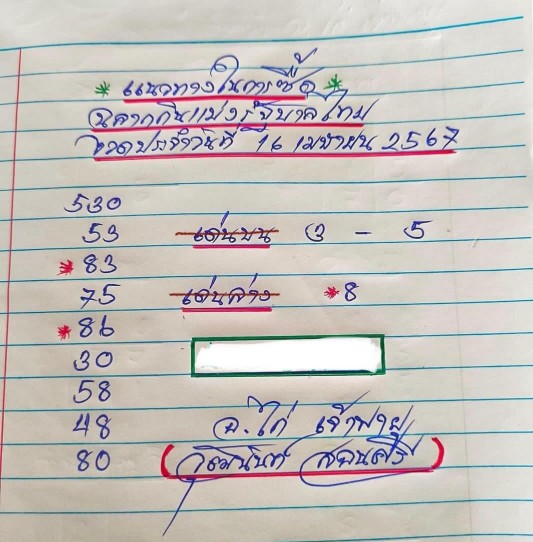 * แนวทางในการซื้อ *
ฉลากกินแบ่งรัฐบาลไทย
งวดประจำวันที่ 16 เมษายน 2567
530
53 เด่นบน 3 - 5
* 83
75 เด่นล่าง * 8
* 86
30
58
48 อ. ไก่ เจ้าพายุ
80